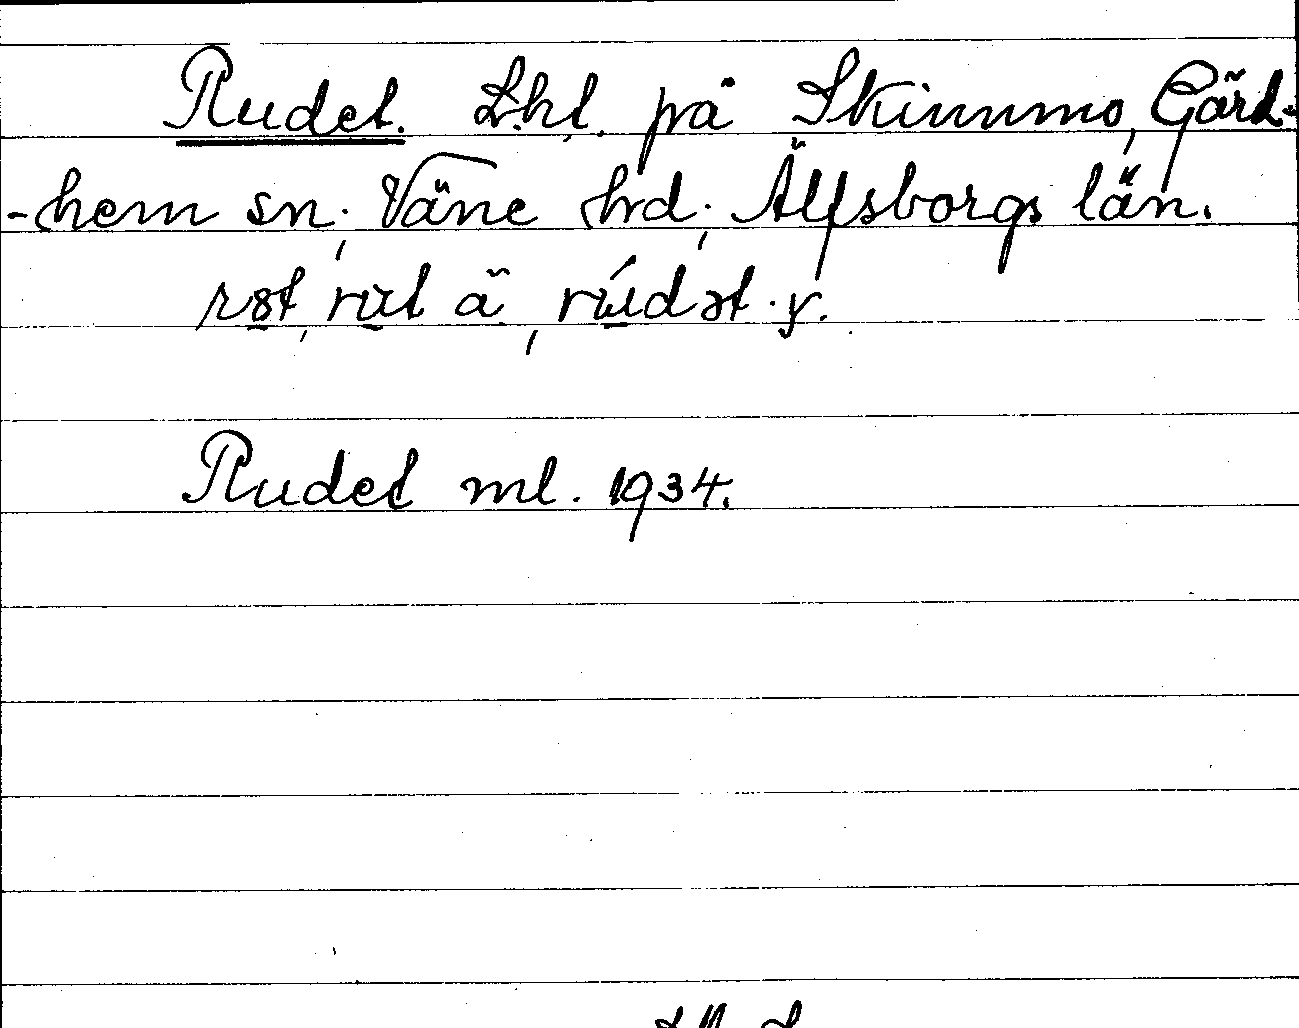 Rudet. Lht. på Skinnmo, Gärd-
-hem sn., Väne hd., Älfsborgs län.
rut ä, rúdət. y.
Rudet ml. 1934.